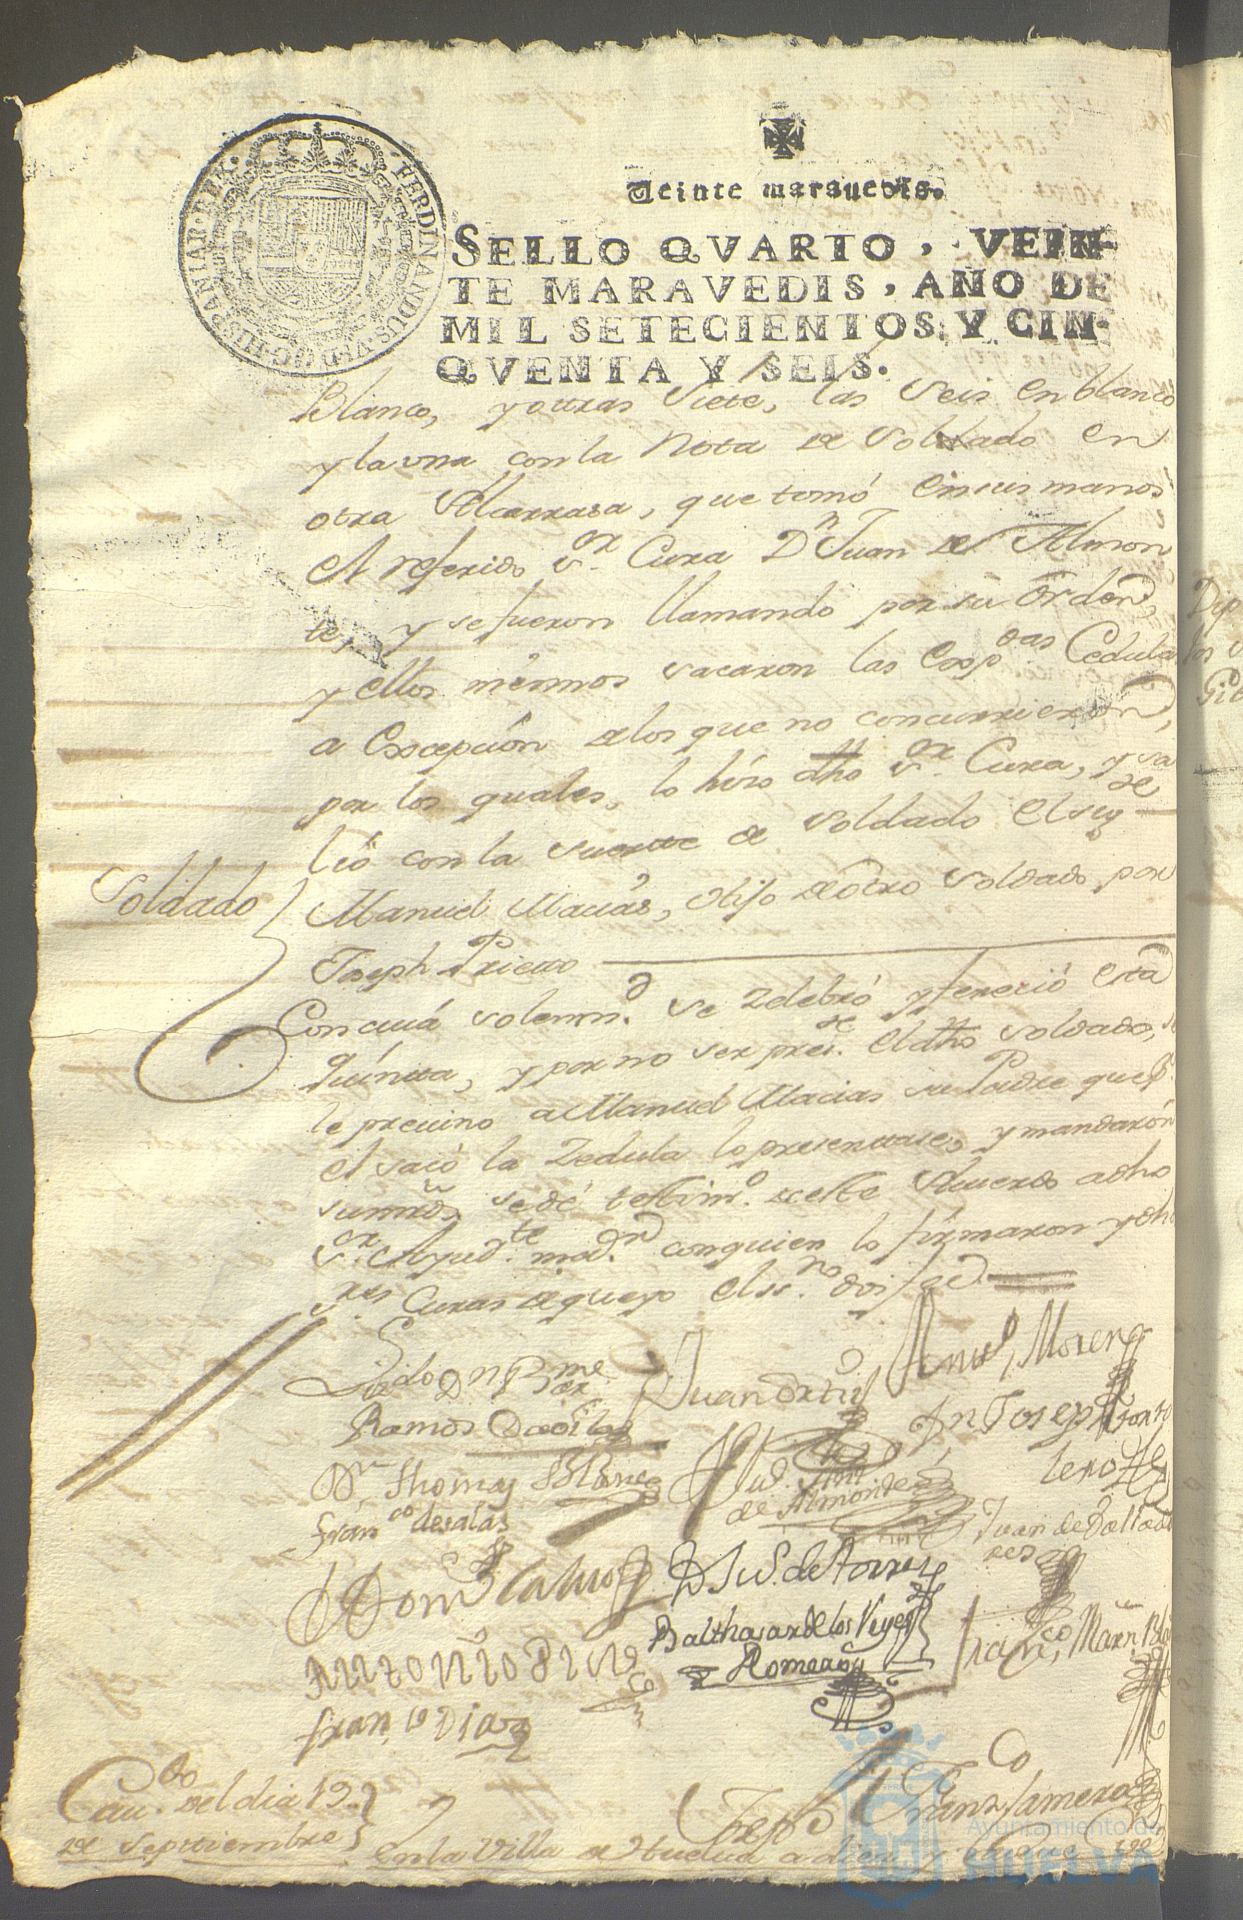 FERDINANDUS·VI·D·G·HISPANIAR·REX·
Veinte marauedis.
SELLO QVARTO, VEIN-
TE MARAVEDIS, AÑO DE
MIL SETECIENTOS Y CIN-
QVENTA Y SEIS.
Blanco, y otras Siete, las Seis en blanco
y la vna con la Nota de Soldado en
otra Alcarrasa, que tomó en sus manos
el referido Sor. Cura Dn Juan de Almon
te, y se fueron llamando por su orden,
y ellos mismos sacaron las expdas Cedula
a Excepción de los que no concurrieron,
por los quales, lo hizo dho Sor. Cura, y sa
lió con la suerte de Soldado el sigte
Soldado
Manuel Macias, Hijo de otro Soldado por
Joseph Prieto
Con cuia solemnd. se Zelebró y feneció esta
Quinta, y por no ser preste. el dho Soldado, se
le preuino a Manuel Macias su Padre que pr.
el sacó la Zedula lo presentase, y mandarón
sus mrds, se dé testimo. de este Acuerdo a dho
Sor. Ayudte. mor. con quien lo firmaron y dhos
res Curas de que yo el ssno. doi fee
Lizdo Dn Bme
Ramos Dauila
Juan Ortiz
Manuel Moreno
Dn Joseph
Dn Thomas Blanco
de Almonte
Franco de Salas
Juan de
Domo Calvo
D Jud. de Torres
Balthasar de los Reyes
Romero
Franco, Marn Bla
Antonio
Franco Diaz
Cauo. del dia 19
de Septiembre
Franco
en la Villa de Huelua a diez y
Ayuntamiento de
HUELVA